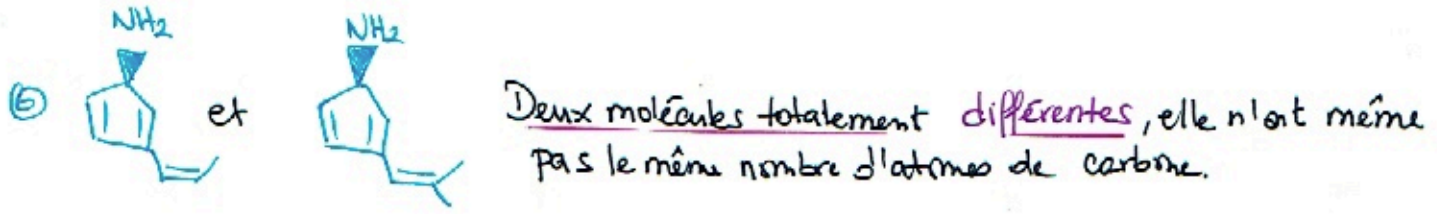 NH2 NH2
⑥ et Deux molécules totalement différentes, elle n'ont même
pas le même nombre d'atomes de carbone.